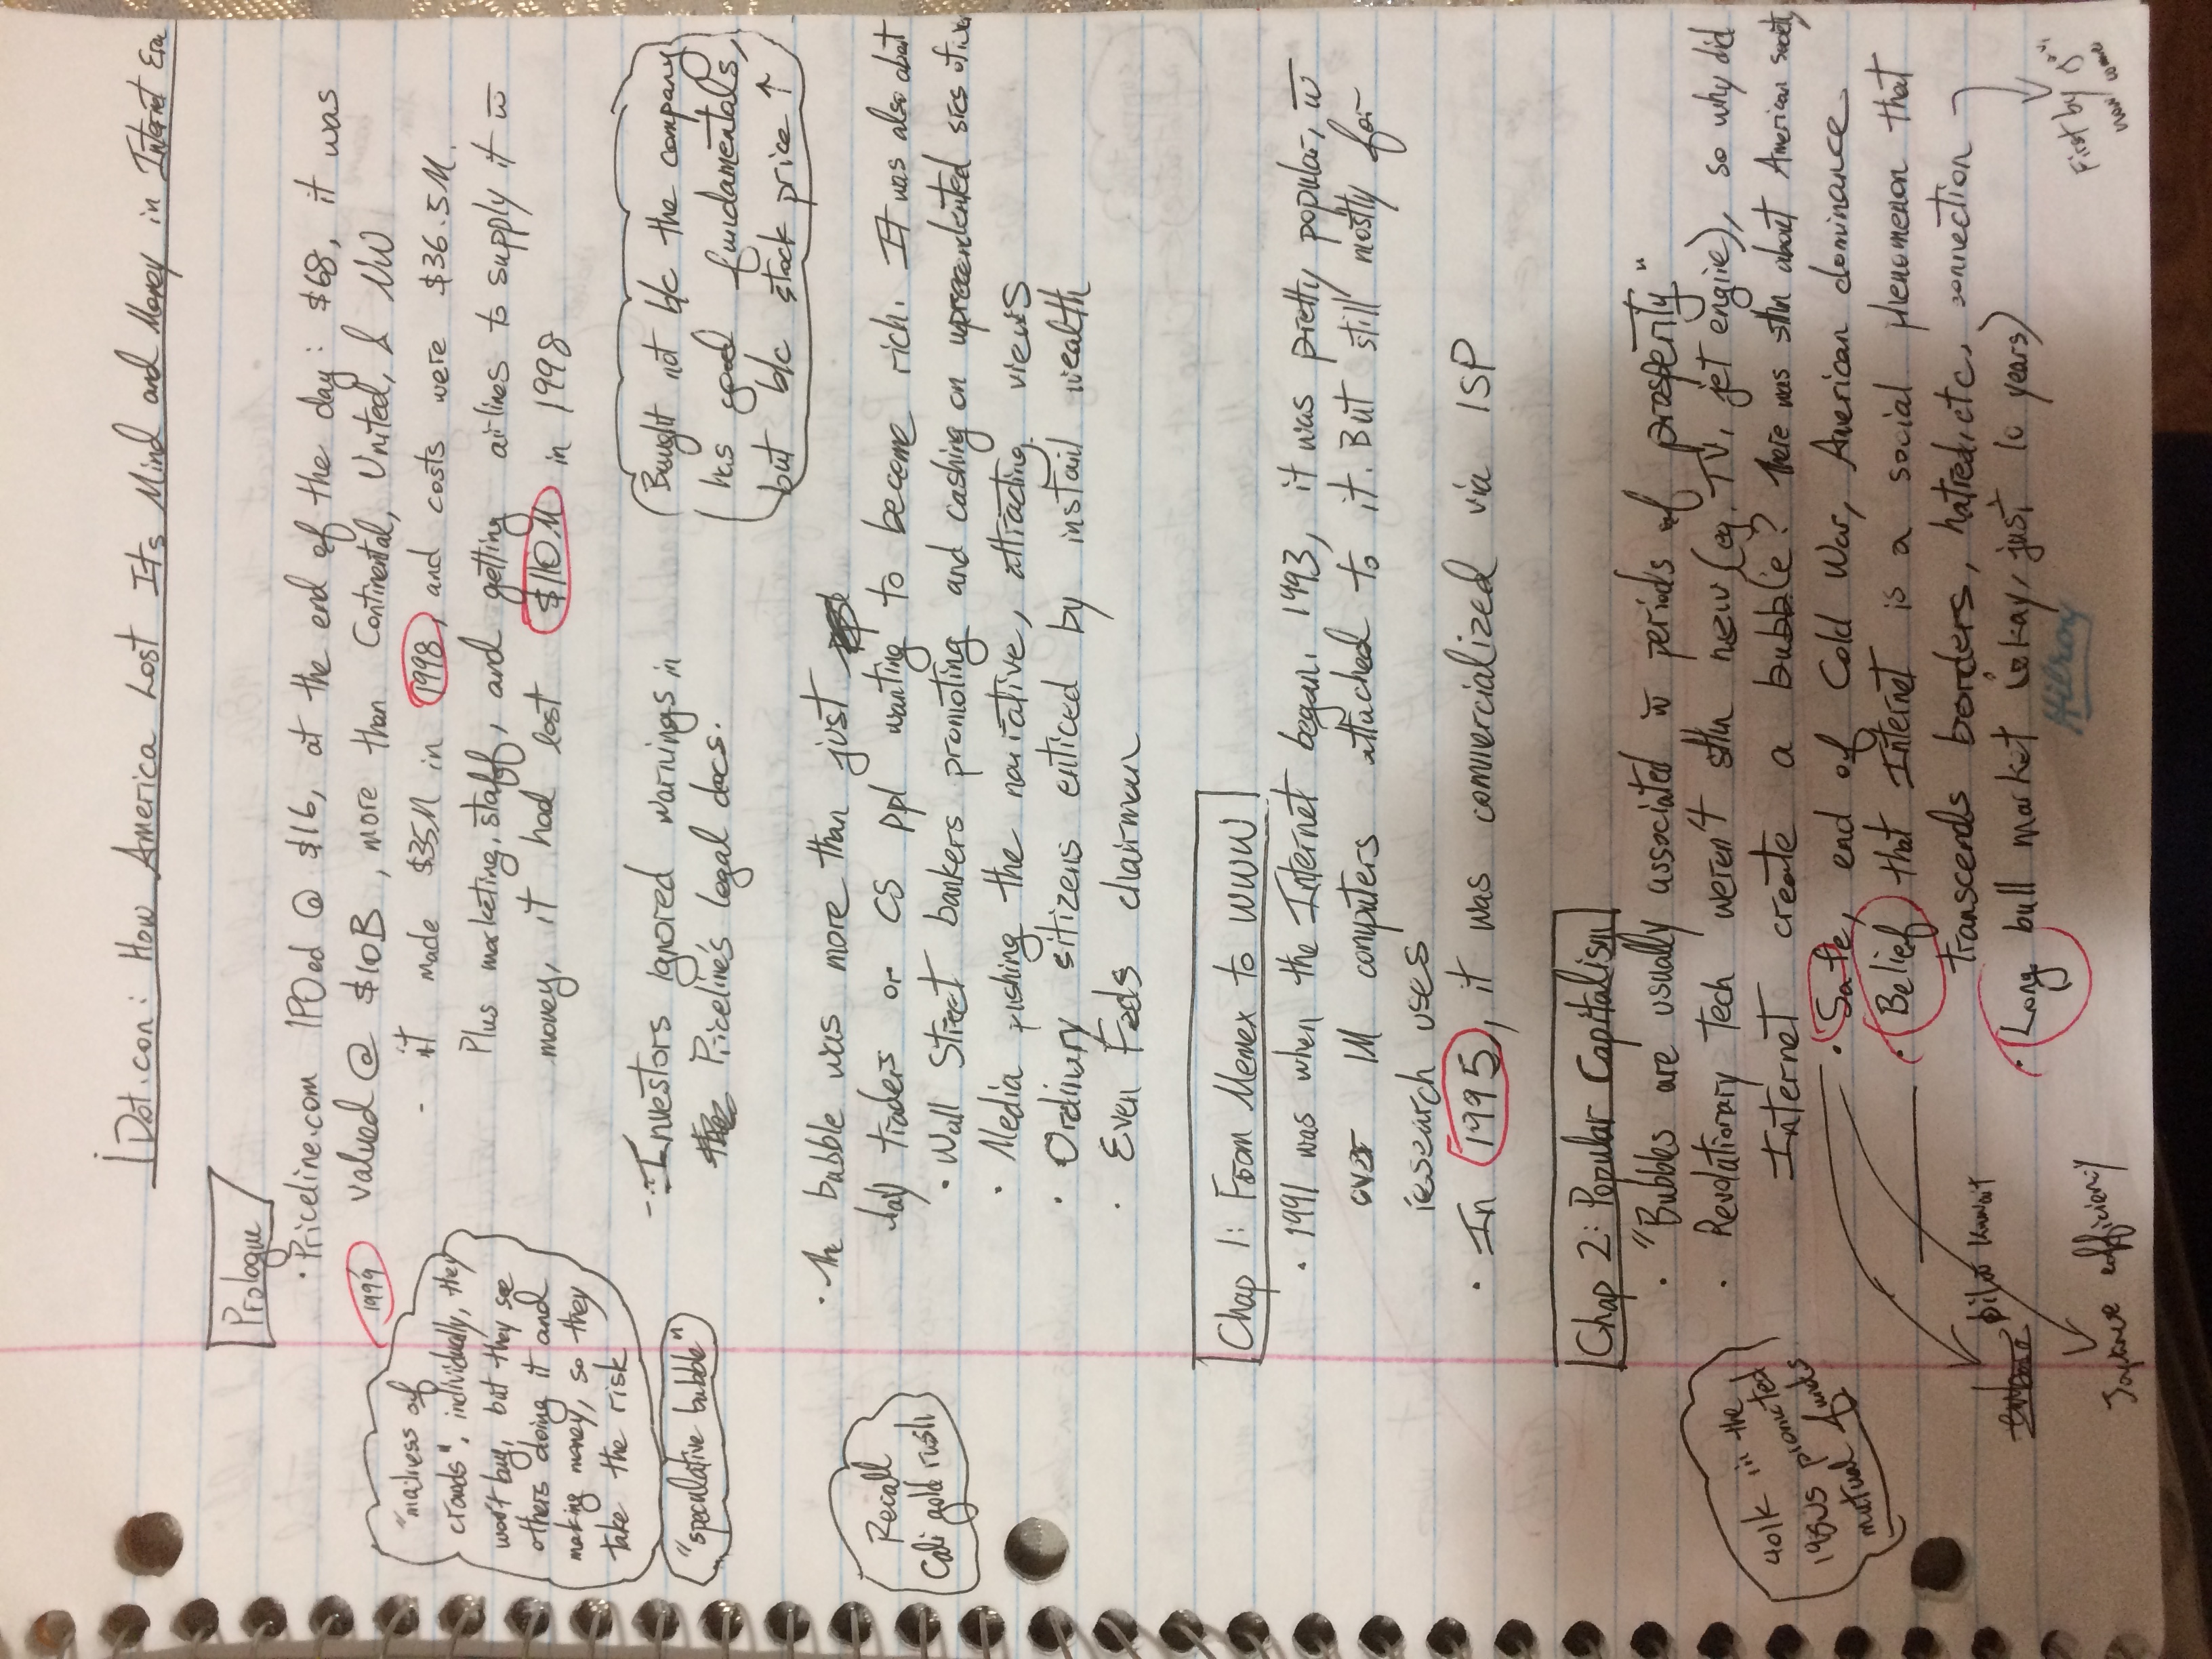 Dot.con: How America Lost Its Mind and Money in Internet Era
Prologue
• Priceline.com IPOed @ $16, at the end of the day: $68, it was
1999
valued @ $10B, more than Continental, United, & NW
- it made $35M in 1998, and costs were $36.5M.
Plus marketing, staff, and getting airlines to supply it w̅
money, it had lost $110M in 1998
"madness of
crowds", individually, they
won't buy, but they see
others doing it and
making money, so they
take the risk
"speculative bubble"
- Investors ignored warnings in
Priceline's legal docs.
Bought not b/c the company
has good fundamentals,
but b/c stock price ↑
• The bubble was more than just
day traders or CS ppl wanting to become rich. It was also about
Recall
Cali gold rush
• Wall Street bankers promoting and cashing on uprecendented
• Media pushing the narrative, attracting views
• Ordinary citizens enticed by instant wealth
• Even Feds chairman
Chap 1: From Memex to WWW
• 1991 was when the Internet began. 1993, it was pretty popular, w̅
over 1M computers attached to it. But still mostly for
research uses
• In 1995, it was commercialized via ISP
Chap 2: Popular Capitalism
• "Bubbles are usually associated w̅ periods of prosperity"
• Revolutionary Tech weren't sthn new (eg. TV, jet engine), so why did
Internet create a bubble? There was sthn about American society,
401k in the
1980s promoted
mutual funds
• Safe, end of Cold War, American dominance
• Belief that Internet is a social phenomenon that
transcends borders, hatred, etc. connection
• Long bull market (okay, just 10 years)
Kuwait
Japanese efficiency
First by gov,
now
Hilroy